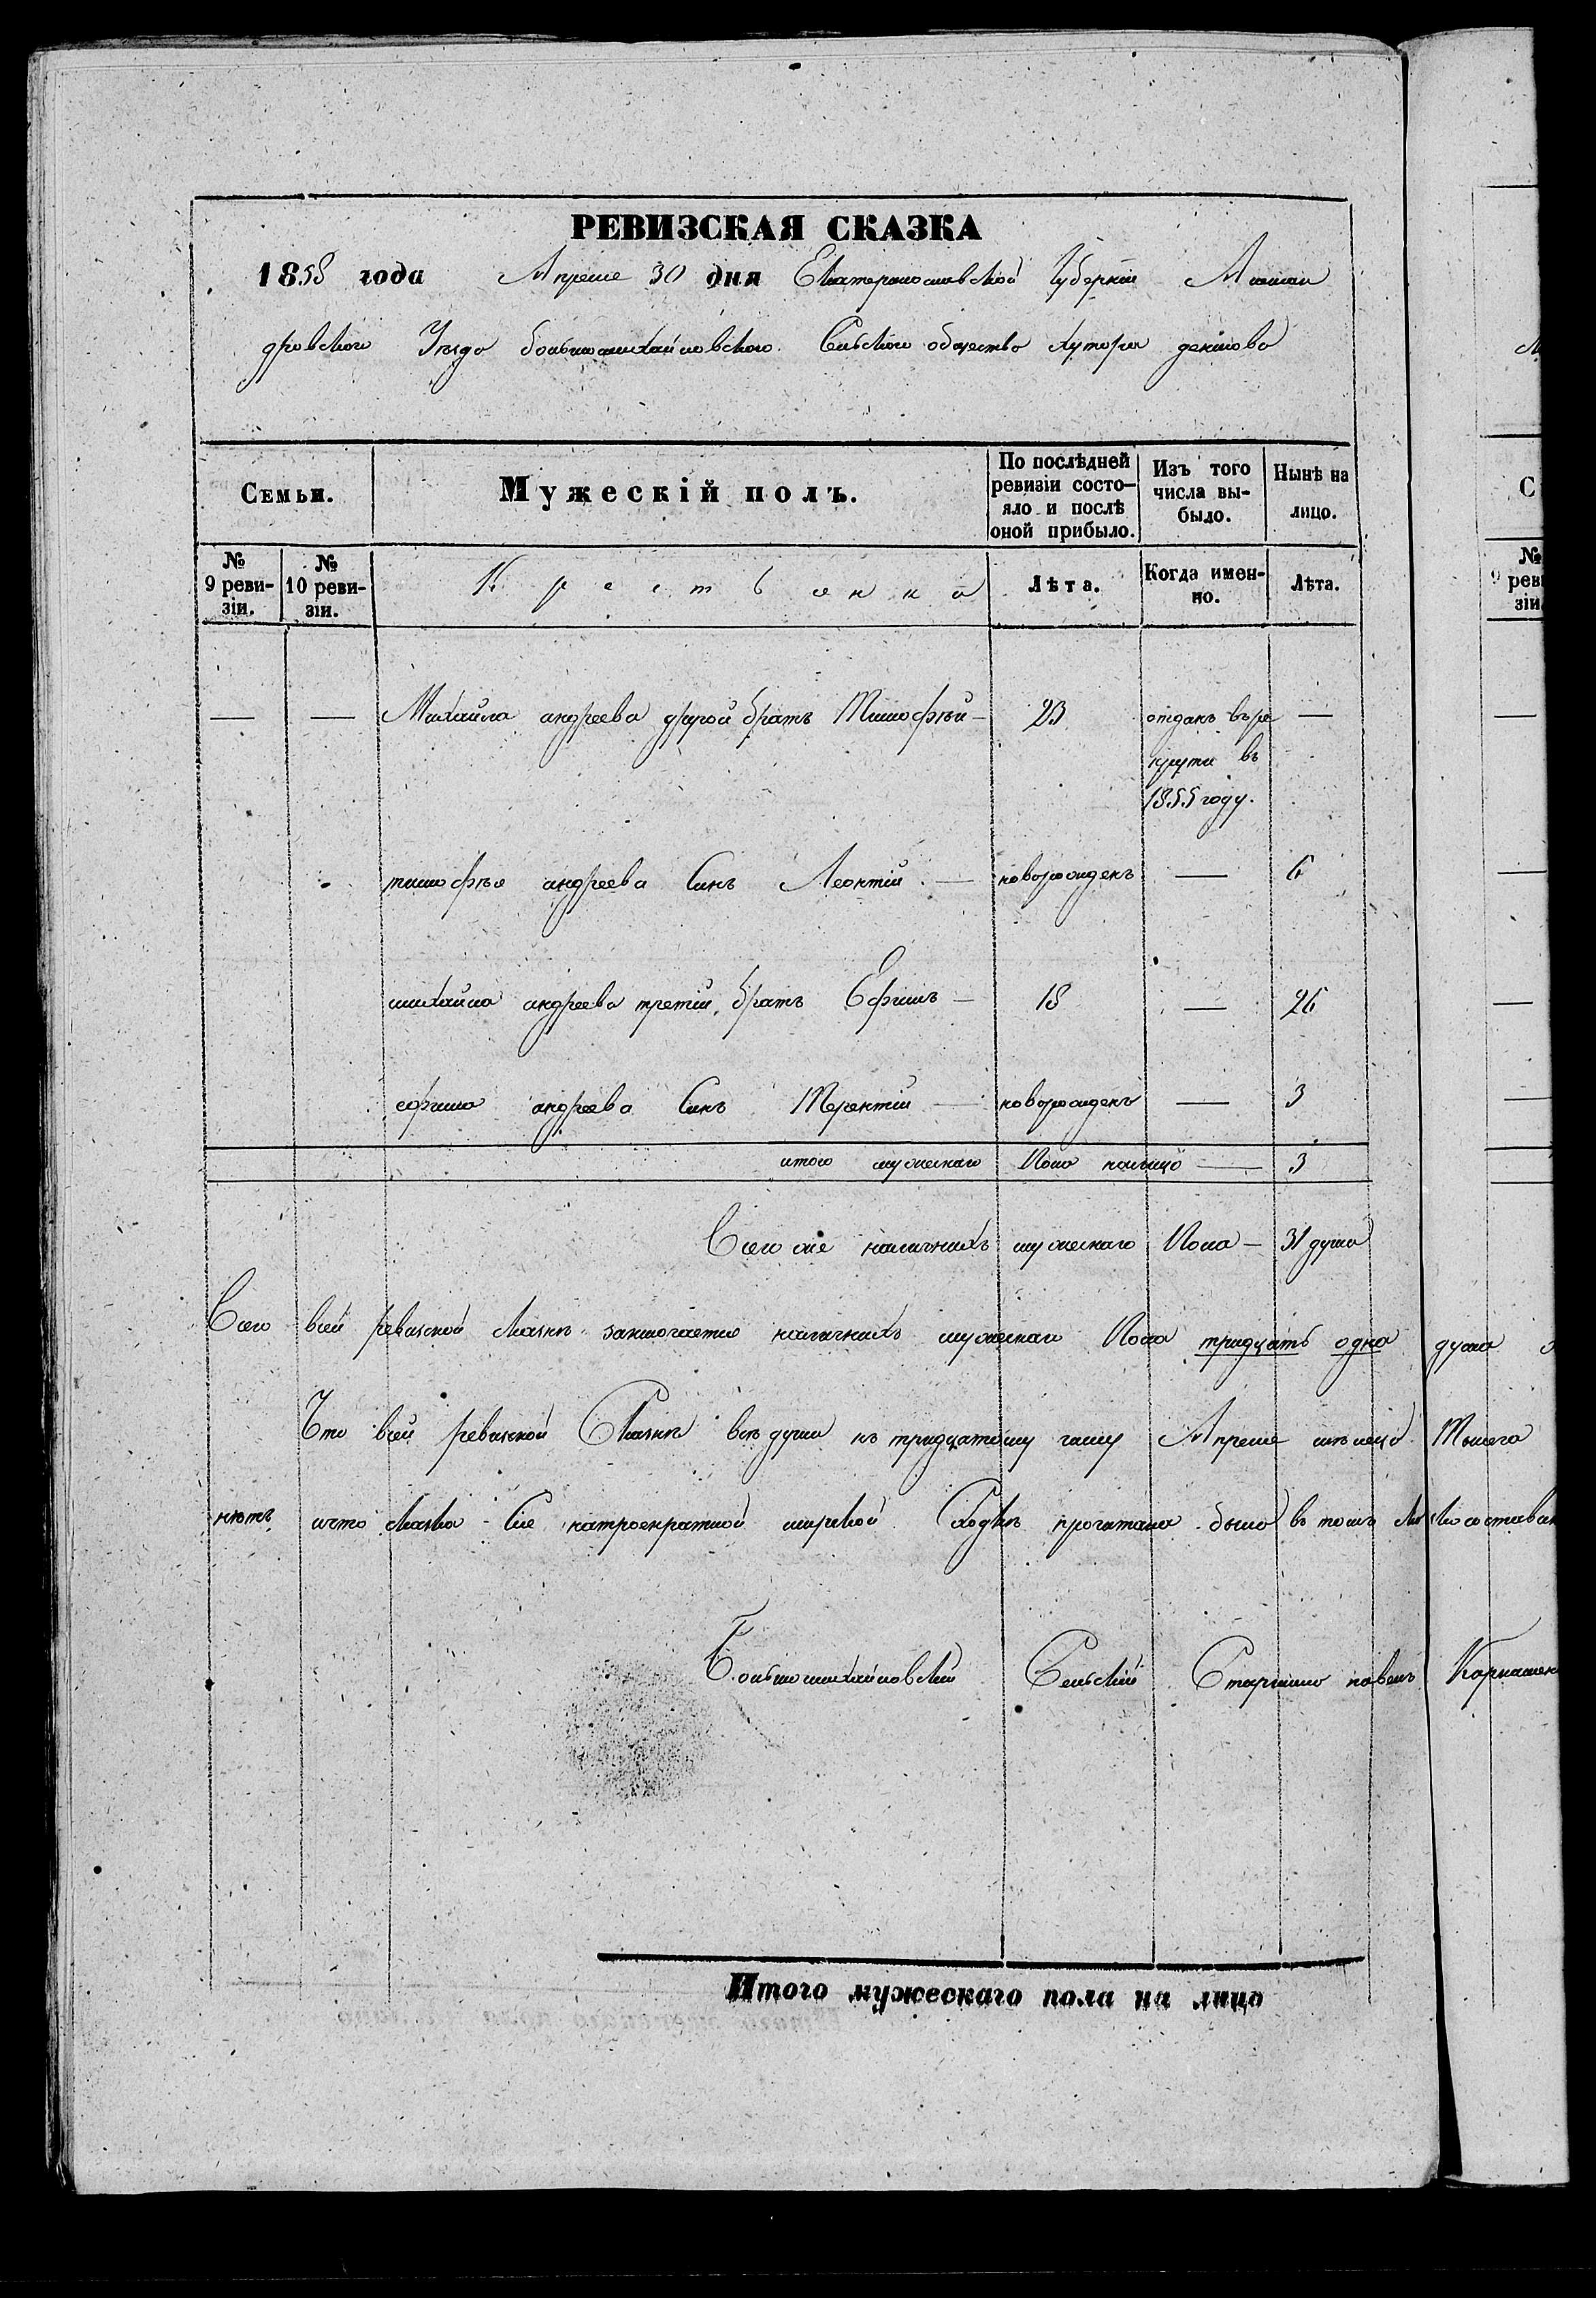 РЕВИЗСКАЯ СКАЗКА
1858 года Апреля 30 дня Екатеринославской Губернии Александ
дровского Уезда большемихайловского Сельского общества хутора
Семьи.
Мужескій полъ.
По послѣдней ревизіи состо-
яло и послѣ
оной прибыло.
Изъ того
числа вы-
было.
Нынѣ на
лицо.
№
9 реви-
зіи.
№
10 реви-
зіи.
Лѣта.
Когда имен-
но.
Лѣта.
— — Михайла андреева другой братъ Тимофѣй — 23 отданъ въре —
крути въ
1855 году.
тимофѣя андреева Синъ Леонтій — новорожденъ — 6
михайла андреева третій братъ Ефимъ — 18 — 26
ефима андреева Синъ Терентій — новорожденъ — 3
итого мужескаго Пола налицо — 3
Всего же наличнихъ мужескаго Пола — 31 душа
Всего всей ревизской сказкѣ заключается наличнихъ мужескаго Пола тридцать одна душа
Что всей ревизской Сказкѣ всѣ души къ тридцатому числу Апреля мѣсяца
нѣтъ ичто сказка Сія натроекратной мирской Сходкѣ прочитана была въ томъ
Большемихайловскій Сельскій Старшина павелъ
Итого мужескаго пола на лицо
№
9 рев
зіи